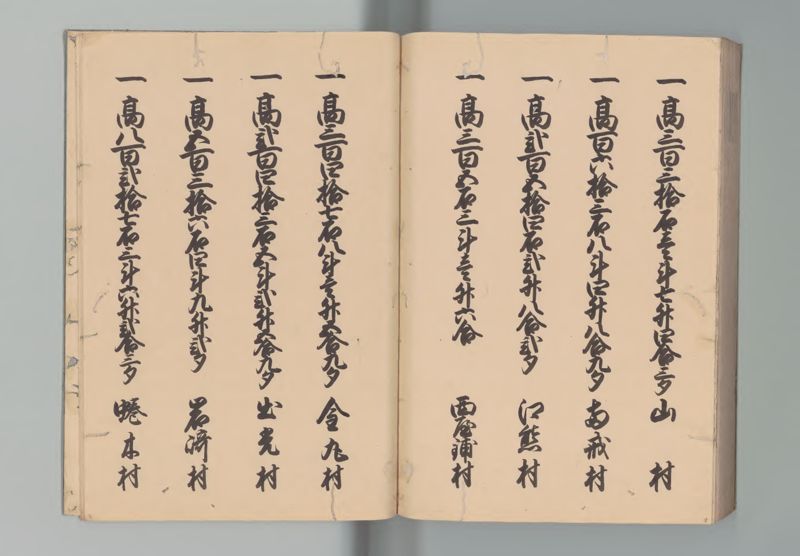 一高三百三拾石壱斗七升四合三夕 山村
一高百六拾三石八斗四升八合九夕 南戒村
一高弐百五拾四石弐升八合弐夕 江熊村
一高三百五石三斗壱升六合 西屋鋪村
一高三百四拾七石八斗壱升五合九夕 今元村
一高弐百四拾三石五斗弐升五合九夕 出光村
一高五百三拾六石四斗九升弐夕 岩﨑村
一高八百弐拾七石三斗六升弐合三夕 蜷木村